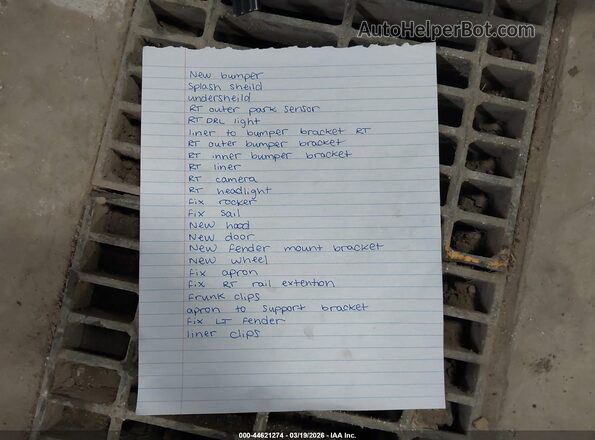 AutoHelperBot.com
New bumper
Splash sheild
undersheild
RT outer park sensor
RT DRL light
liner to bumper bracket RT
RT outer bumper bracket
RT inner bumper bracket
RT liner
RT camera
RT headlight
fix rocker
fix sail
New hood
New door
New fender mount bracket
New wheel
fix apron
fix RT rail extention
frunk clips
apron to support bracket
fix LT fender
liner clips
000-44621274 - 03/19/2026 - IAA Inc.
AutoHelperBot.com